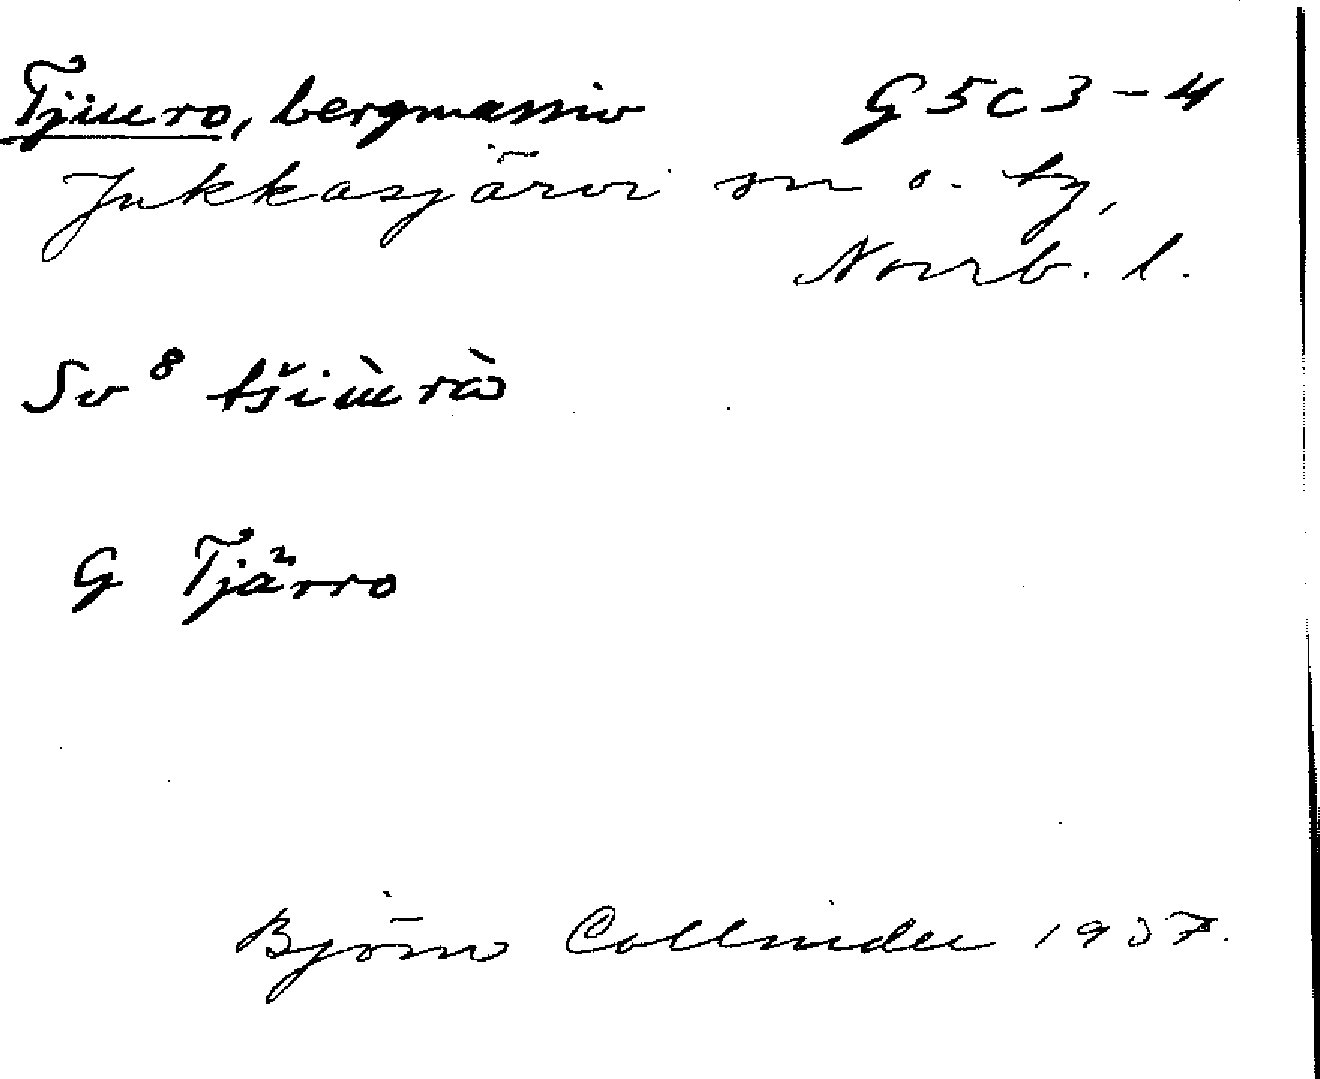 Tjiuro, bergmassiv G5c3-4
Jukkasjärvi sn o. by,
Norrb. l.
Sv 8
G Tjärro
Björn Collinder 1937.